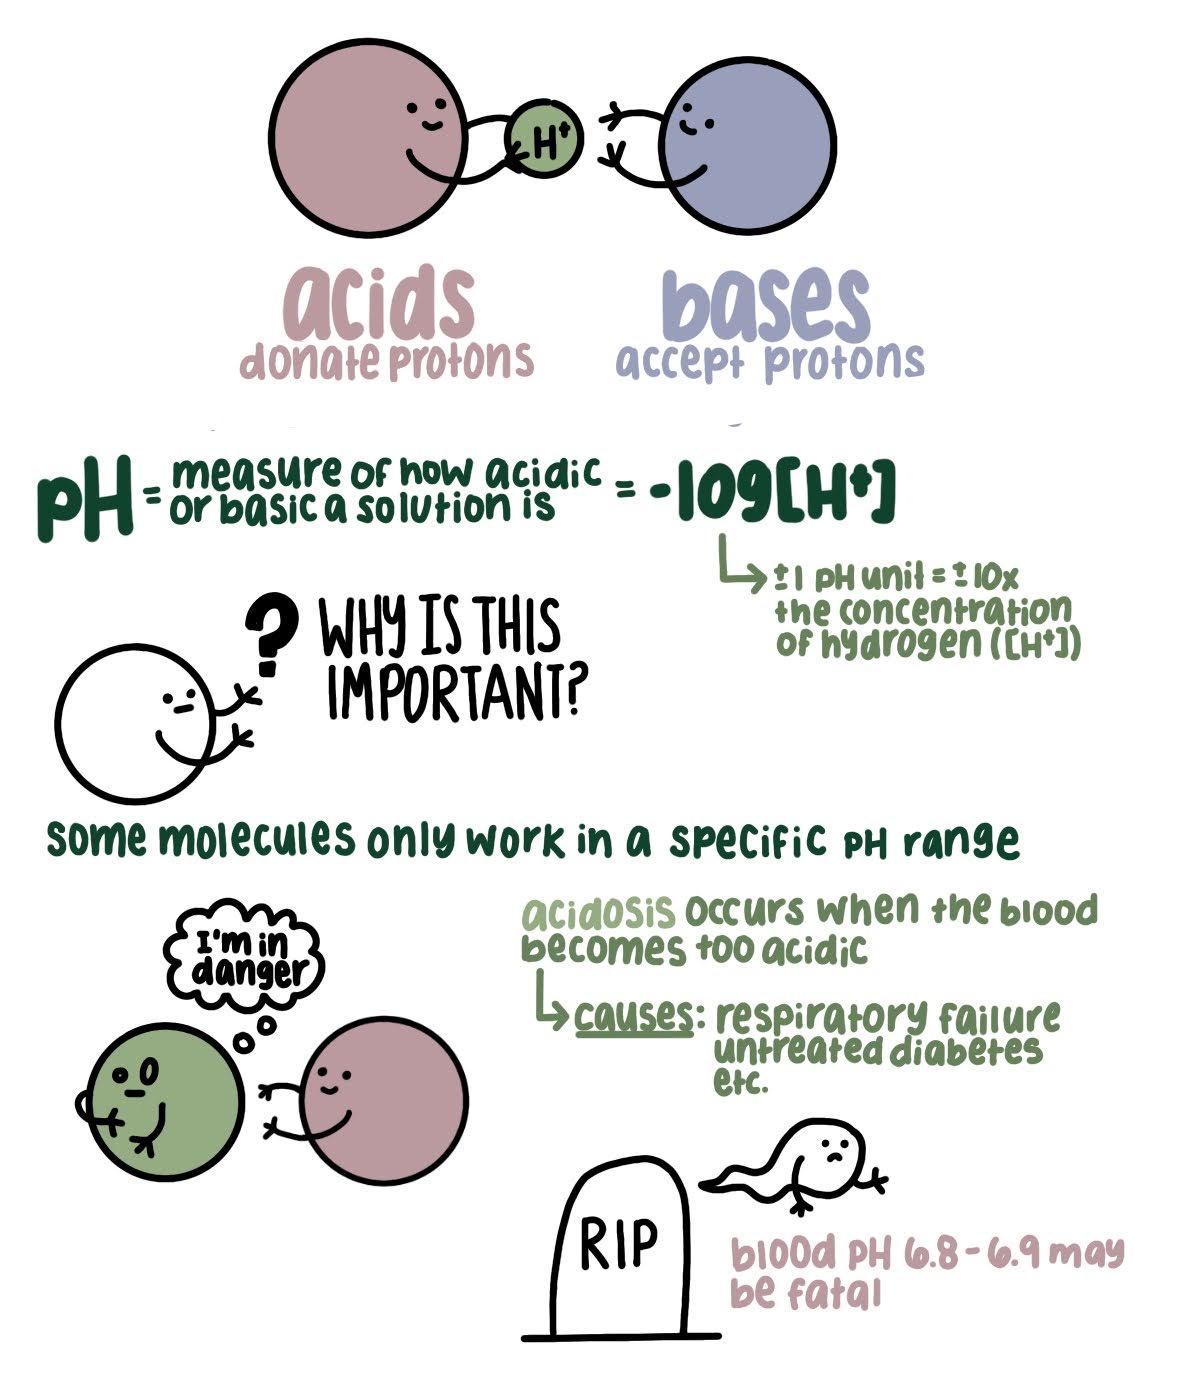 H⁺
acids
donate protons
bases
accept protons
pH = measure of how acidic or basic a solution is = -log[H⁺]
± 1 pH unit = ± 10x
the concentration
of hydrogen ([H⁺])
?
WHY IS THIS
IMPORTANT?
some molecules only work in a specific pH range
I'm in
danger
acidosis occurs when the blood
becomes too acidic
causes: respiratory failure
untreated diabetes
etc.
RIP
blood pH 6.8-6.9 may
be fatal